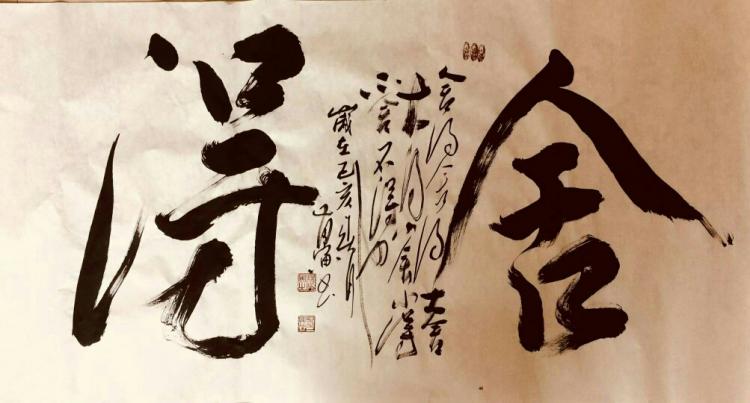 舍
舍得舍得大舍
大得小舍小得
不舍不得
歲在己亥春月
得